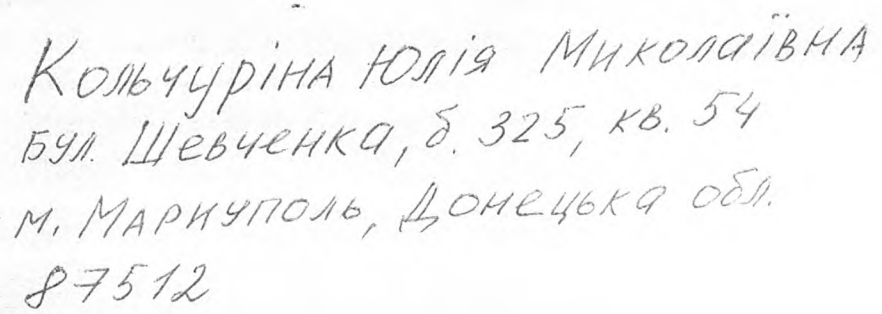 Кольчуріна Юлія Миколаївна
бул. Шевченка, б. 325, кв. 54
м. Мариуполь, Донецька обл.
87512